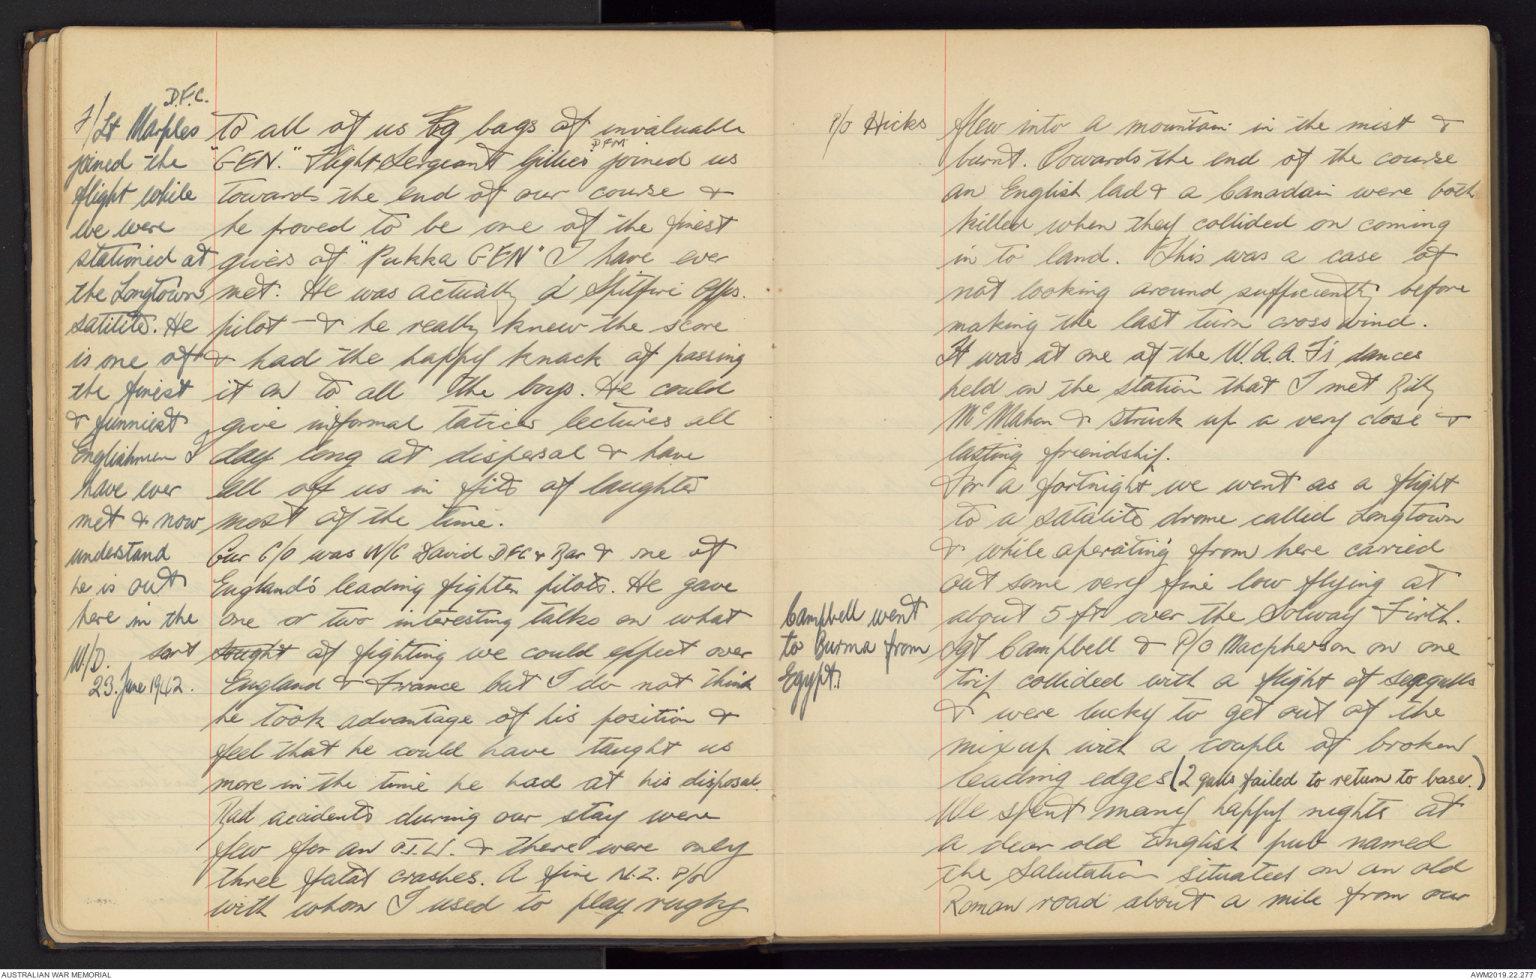 D.F.C.
F/Lt Marples
joined the
flight while
we were
stationed at
the Longtown
satilite. He
is one of
the finest
& funniest
Englishmen I
have ever
met & now
understand
he is out
here in the
W/D.
23. June 1942.
to all of us big bags of invaluable
"GEN." Flight Sergeant Gillies DFM joined us
towards the end of our course &
he proved to be one of the finest
givers of "Pukka GEN" I have ever
met. He was actually a Spitfire Ops.
pilot - & he really knew the score
& had the happy knack of passing
it on to all the boys. He could
give informal tatics lectures all
day long at dispersal & have
all of us in fits of laughter
most of the time.
Our C/O was W/C David DFC & Bar & one of
England's leading fighter pilots. He gave
one or two interesting talks on what
sort of fighting we could effect over
England & France but I do not think
he took advantage of his position &
feel that he could have taught us
more in the time he had at his disposal.
Bad accidents during our stay were
few for an O.T.U. & there were only
three fatal crashes. A fine N.Z. P/O
with whom I used to play rugby
P/O Hicks
Campbell went
to Burma from
Egypt.
flew into a mountain in the mist &
burnt. Towards the end of the course
an English lad & a Canadain were both
killed when they collided on coming
in to land. This was a case of
not looking around sufficiently before
making the last turn cross wind.
It was at one of the W.A.A.F's dances
held on the station that I met Billy
McMahon & struck up a very close &
lasting friendship.
For a fortnight we went as a flight
to a satalite drome called Longtown
& while operating from here carried
out some very fine low flying at
about 5 fts over the Solway Firth.
Sgt Campbell & P/O Macpherson on one
trip collided with a flight of seagulls
& were lucky to get out of the
mixup with a couple of broken
leading edges (2 gulls failed to return to base.)
We spent many happy nights at
a dear old English pub named
the Salutation situated on an old
Roman road about a mile from our
AUSTRALIAN WAR MEMORIAL
AWM2019.22.277